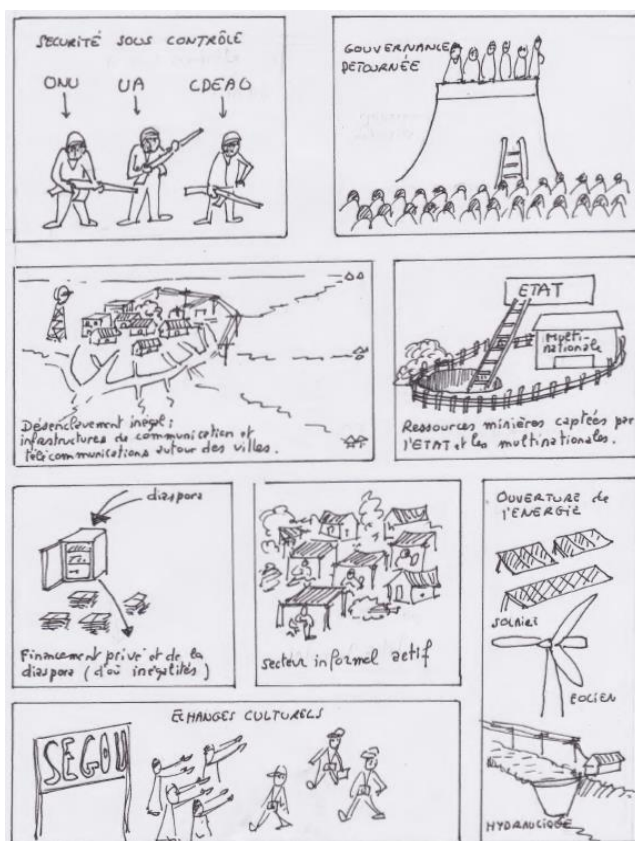 SÉCURITÉ SOUS CONTRÔLE
ONU UA CDEAO
GOUVERNANCE
DETOURNÉE
Désenclavement inégal :
infrastructures de communication et
télécommunications autour des villes.
ETAT
Multi-
nationale
Ressources minières captées par
l'ETAT et les multinationales.
diaspora
Financement privé et de la
diaspora (d'où inégalités)
secteur informel actif
OUVERTURE de
l'ENERGIE
SOLAIRE
EOLIEN
HYDRAULIQUE
ECHANGES CULTURELS
SEGOU